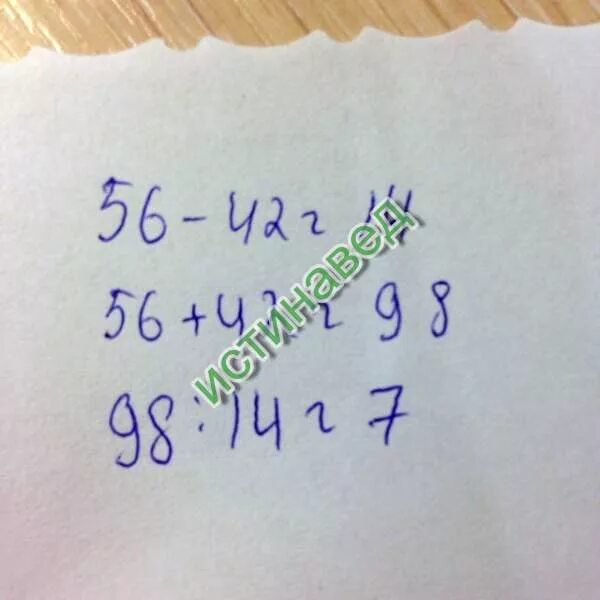 56 - 42 = 14
56 + 42 = 98
98 : 14 = 7
истинавед